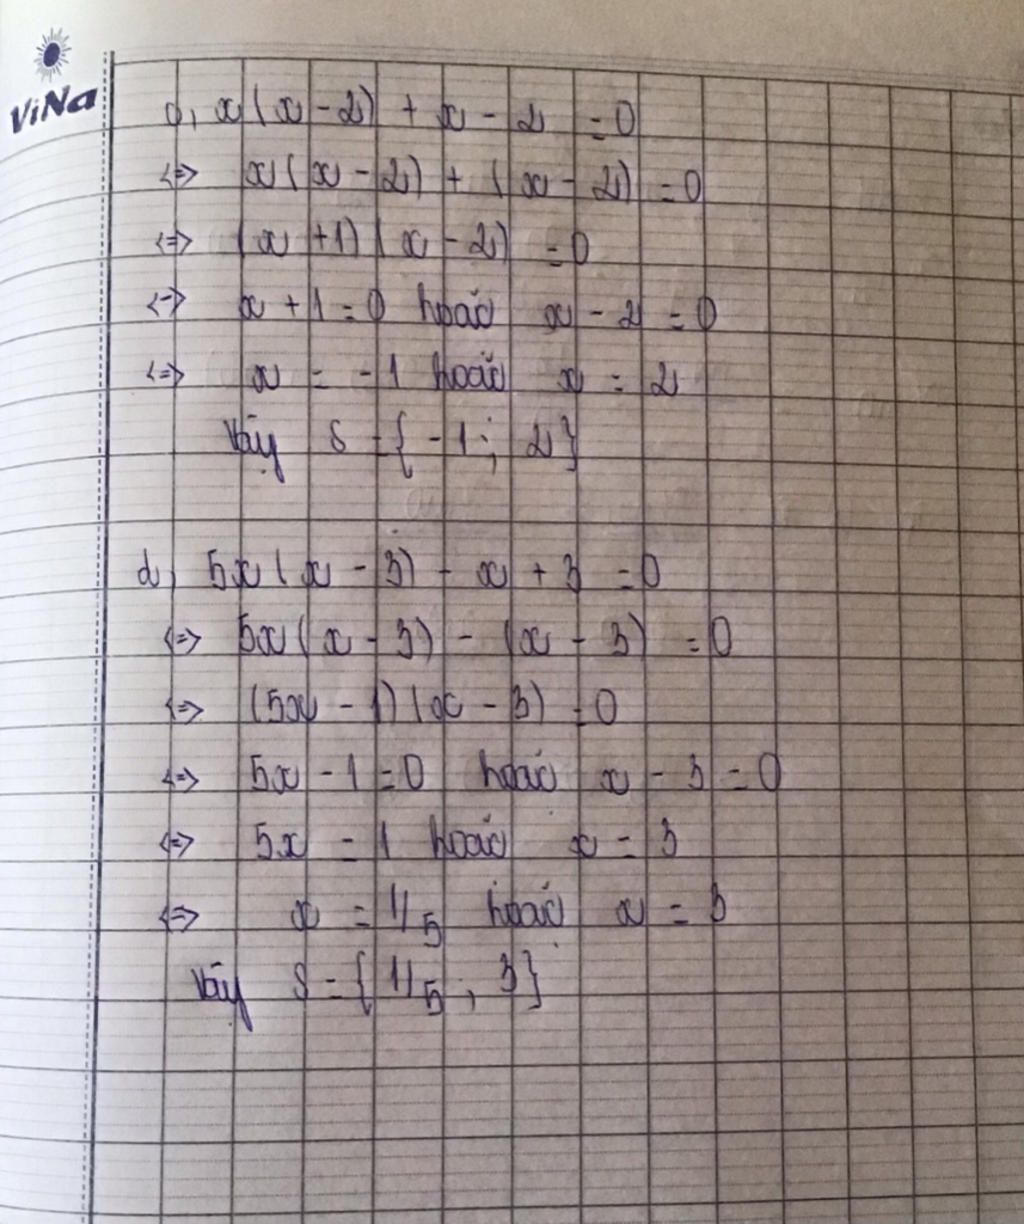 ViNa
c, x(x - 2) + x - 2 = 0
<=> x(x - 2) + (x - 2) = 0
<=> (x + 1)(x - 2) = 0
<=> x + 1 = 0 hoặc x - 2 = 0
<=> x = -1 hoặc x = 2
Vậy S = { -1 ; 2 }
d) 5x(x - 3) - x + 3 = 0
<=> 5x(x - 3) - (x - 3) = 0
<=> (5x - 1)(x - 3) = 0
<=> 5x - 1 = 0 hoặc x - 3 = 0
<=> 5x = 1 hoặc x = 3
<=> x = 1/5 hoặc x = 3
Vậy S = { 1/5 ; 3 }